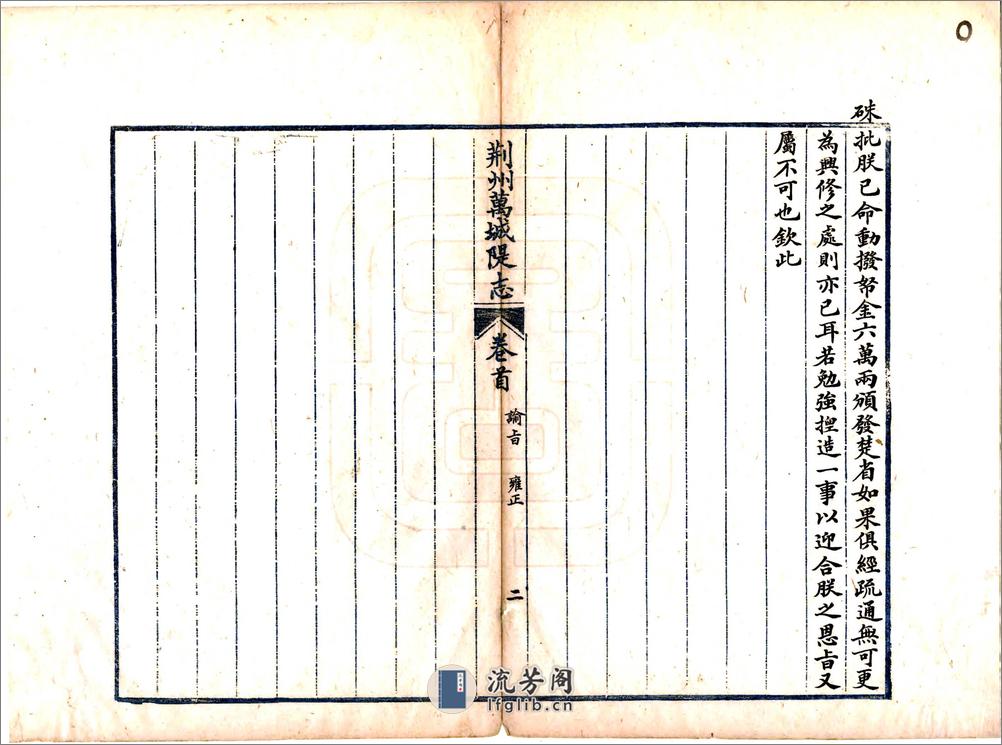 硃批朕已命動撥帑金六萬兩頒發楚省如果俱經疏通無可更
為興修之處則亦已耳若勉強捏造一事以迎合朕之恩旨又
屬不可也欽此
荆州萬城隄志
卷首
諭旨 雍正
二
流芳阁
lfglib.cn